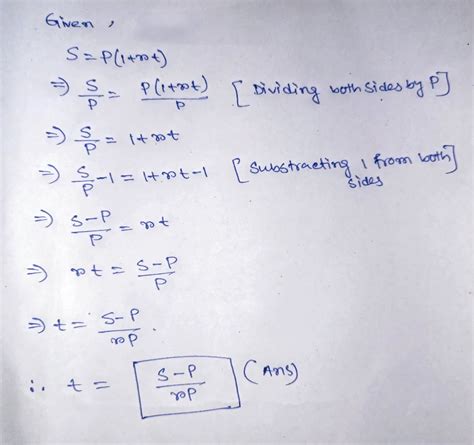 Given,
S = P(1+rt)
⇒ S/P = P(1+rt)/P [Dividing both sides by P]
⇒ S/P = 1+rt
⇒ S/P - 1 = 1+rt-1 [Substracting 1 from both sides]
⇒ S-P/P = rt
⇒ rt = S-P/P
⇒ t = S-P/rP.
∴ t = S-P/rP (Ans)